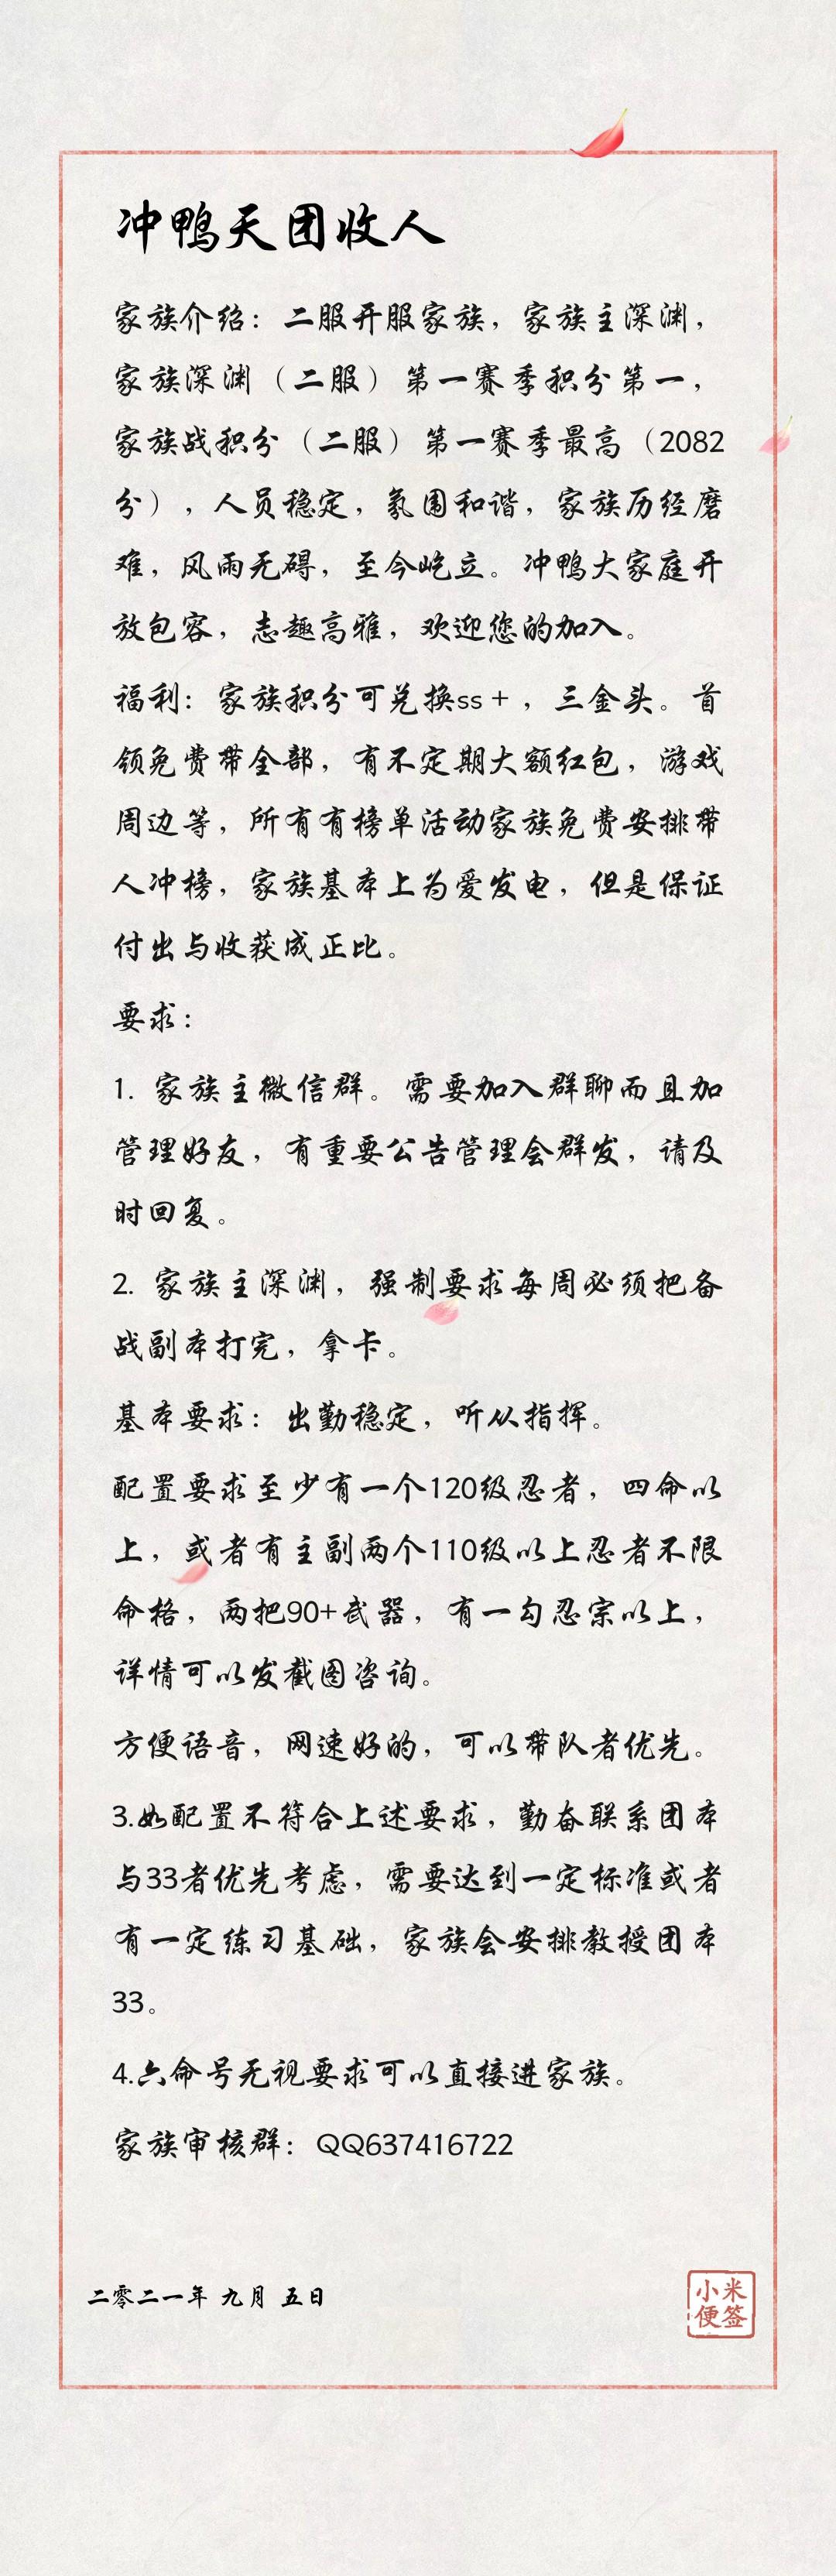 冲鸭天团收人
家族介绍：二服开服家族，家族主深渊，
家族深渊（二服）第一赛季积分第一，
家族战积分（二服）第一赛季最高（2082
分），人员稳定，氛围和谐，家族历经磨
难，风雨无碍，至今屹立。冲鸭大家庭开
放包容，志趣高雅，欢迎您的加入。
福利：家族积分可兑换ss＋，三金头。首
领免费带全部，有不定期大额红包，游戏
周边等，所有有榜单活动家族免费安排带
人冲榜，家族基本上为爱发电，但是保证
付出与收获成正比。
要求：
1. 家族主微信群。需要加入群聊而且加
管理好友，有重要公告管理会群发，请及
时回复。
2. 家族主深渊，强制要求每周必须把备
战副本打完，拿卡。
基本要求：出勤稳定，听从指挥。
配置要求至少有一个120级忍者，四命以
上，或者有主副两个110级以上忍者不限
命格，两把90+武器，有一勾忍宗以上，
详情可以发截图咨询。
方便语音，网速好的，可以带队者优先。
3.如配置不符合上述要求，勤奋联系团本
与33者优先考虑，需要达到一定标准或者
有一定练习基础，家族会安排教授团本
33。
4.六命号无视要求可以直接进家族。
家族审核群：QQ637416722
二零二一年 九月 五日
小米
便签